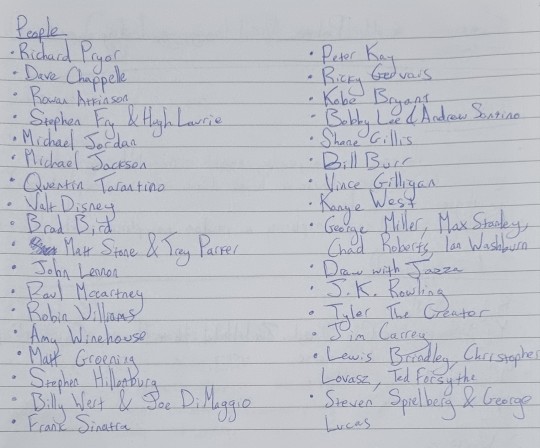 People
• Richard Pryor
• Dave Chappelle
• Rowan Atkinson
• Stephen Fry & Hugh Laurie
• Michael Jordan
• Michael Jackson
• Quentin Tarantino
• Walt Disney
• Brad Bird
• Matt Stone & Trey Parker
• John Lennon
• Paul Mccartney
• Robin Williams
• Amy Winehouse
• Matt Groening
• Stephen Hillenburg
• Billy West & Joe DiMaggio
• Frank Sinatra
• Peter Kay
• Ricky Gervais
• Kobe Bryant
• Bobby Lee & Andrew Santino
• Shane Gillis
• Bill Burr
• Vince Gilligan
• Kanye West
• George Miller, Max Stanley,
Chad Roberts, Ian Washburn
• Draw with Jazza
• J.K. Rowling
• Tyler The Creator
• Jim Carrey
• Lewis Brindley, Christopher
Lovasz, Ted Forsythe
• Steven Spielberg & George
Lucas